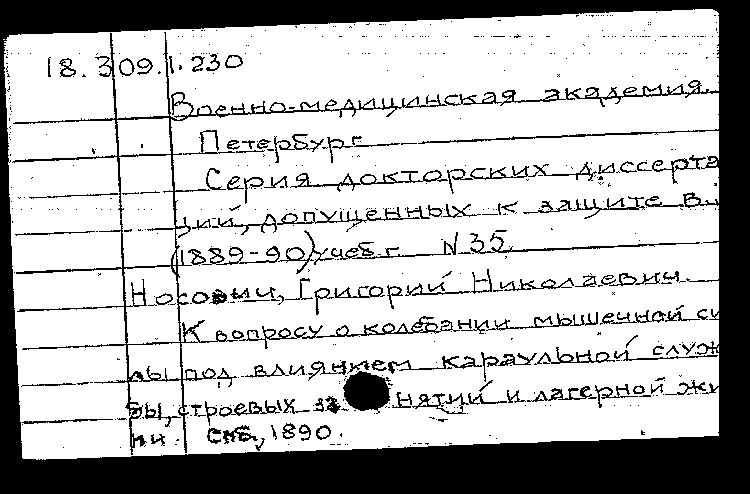 18.309.1.230
Военно-медицинская академия.
Петербург
Серия докторских диссерта
ций, допущенных к защите в..
(1889-90) учеб г. N 35.
Носович, Григорий Николаевич.
К вопросу о колебании мышечной си
лы под влиянием караульной служ
бы, строевых занятий и лагерной жи
ни. СПб., 1890.